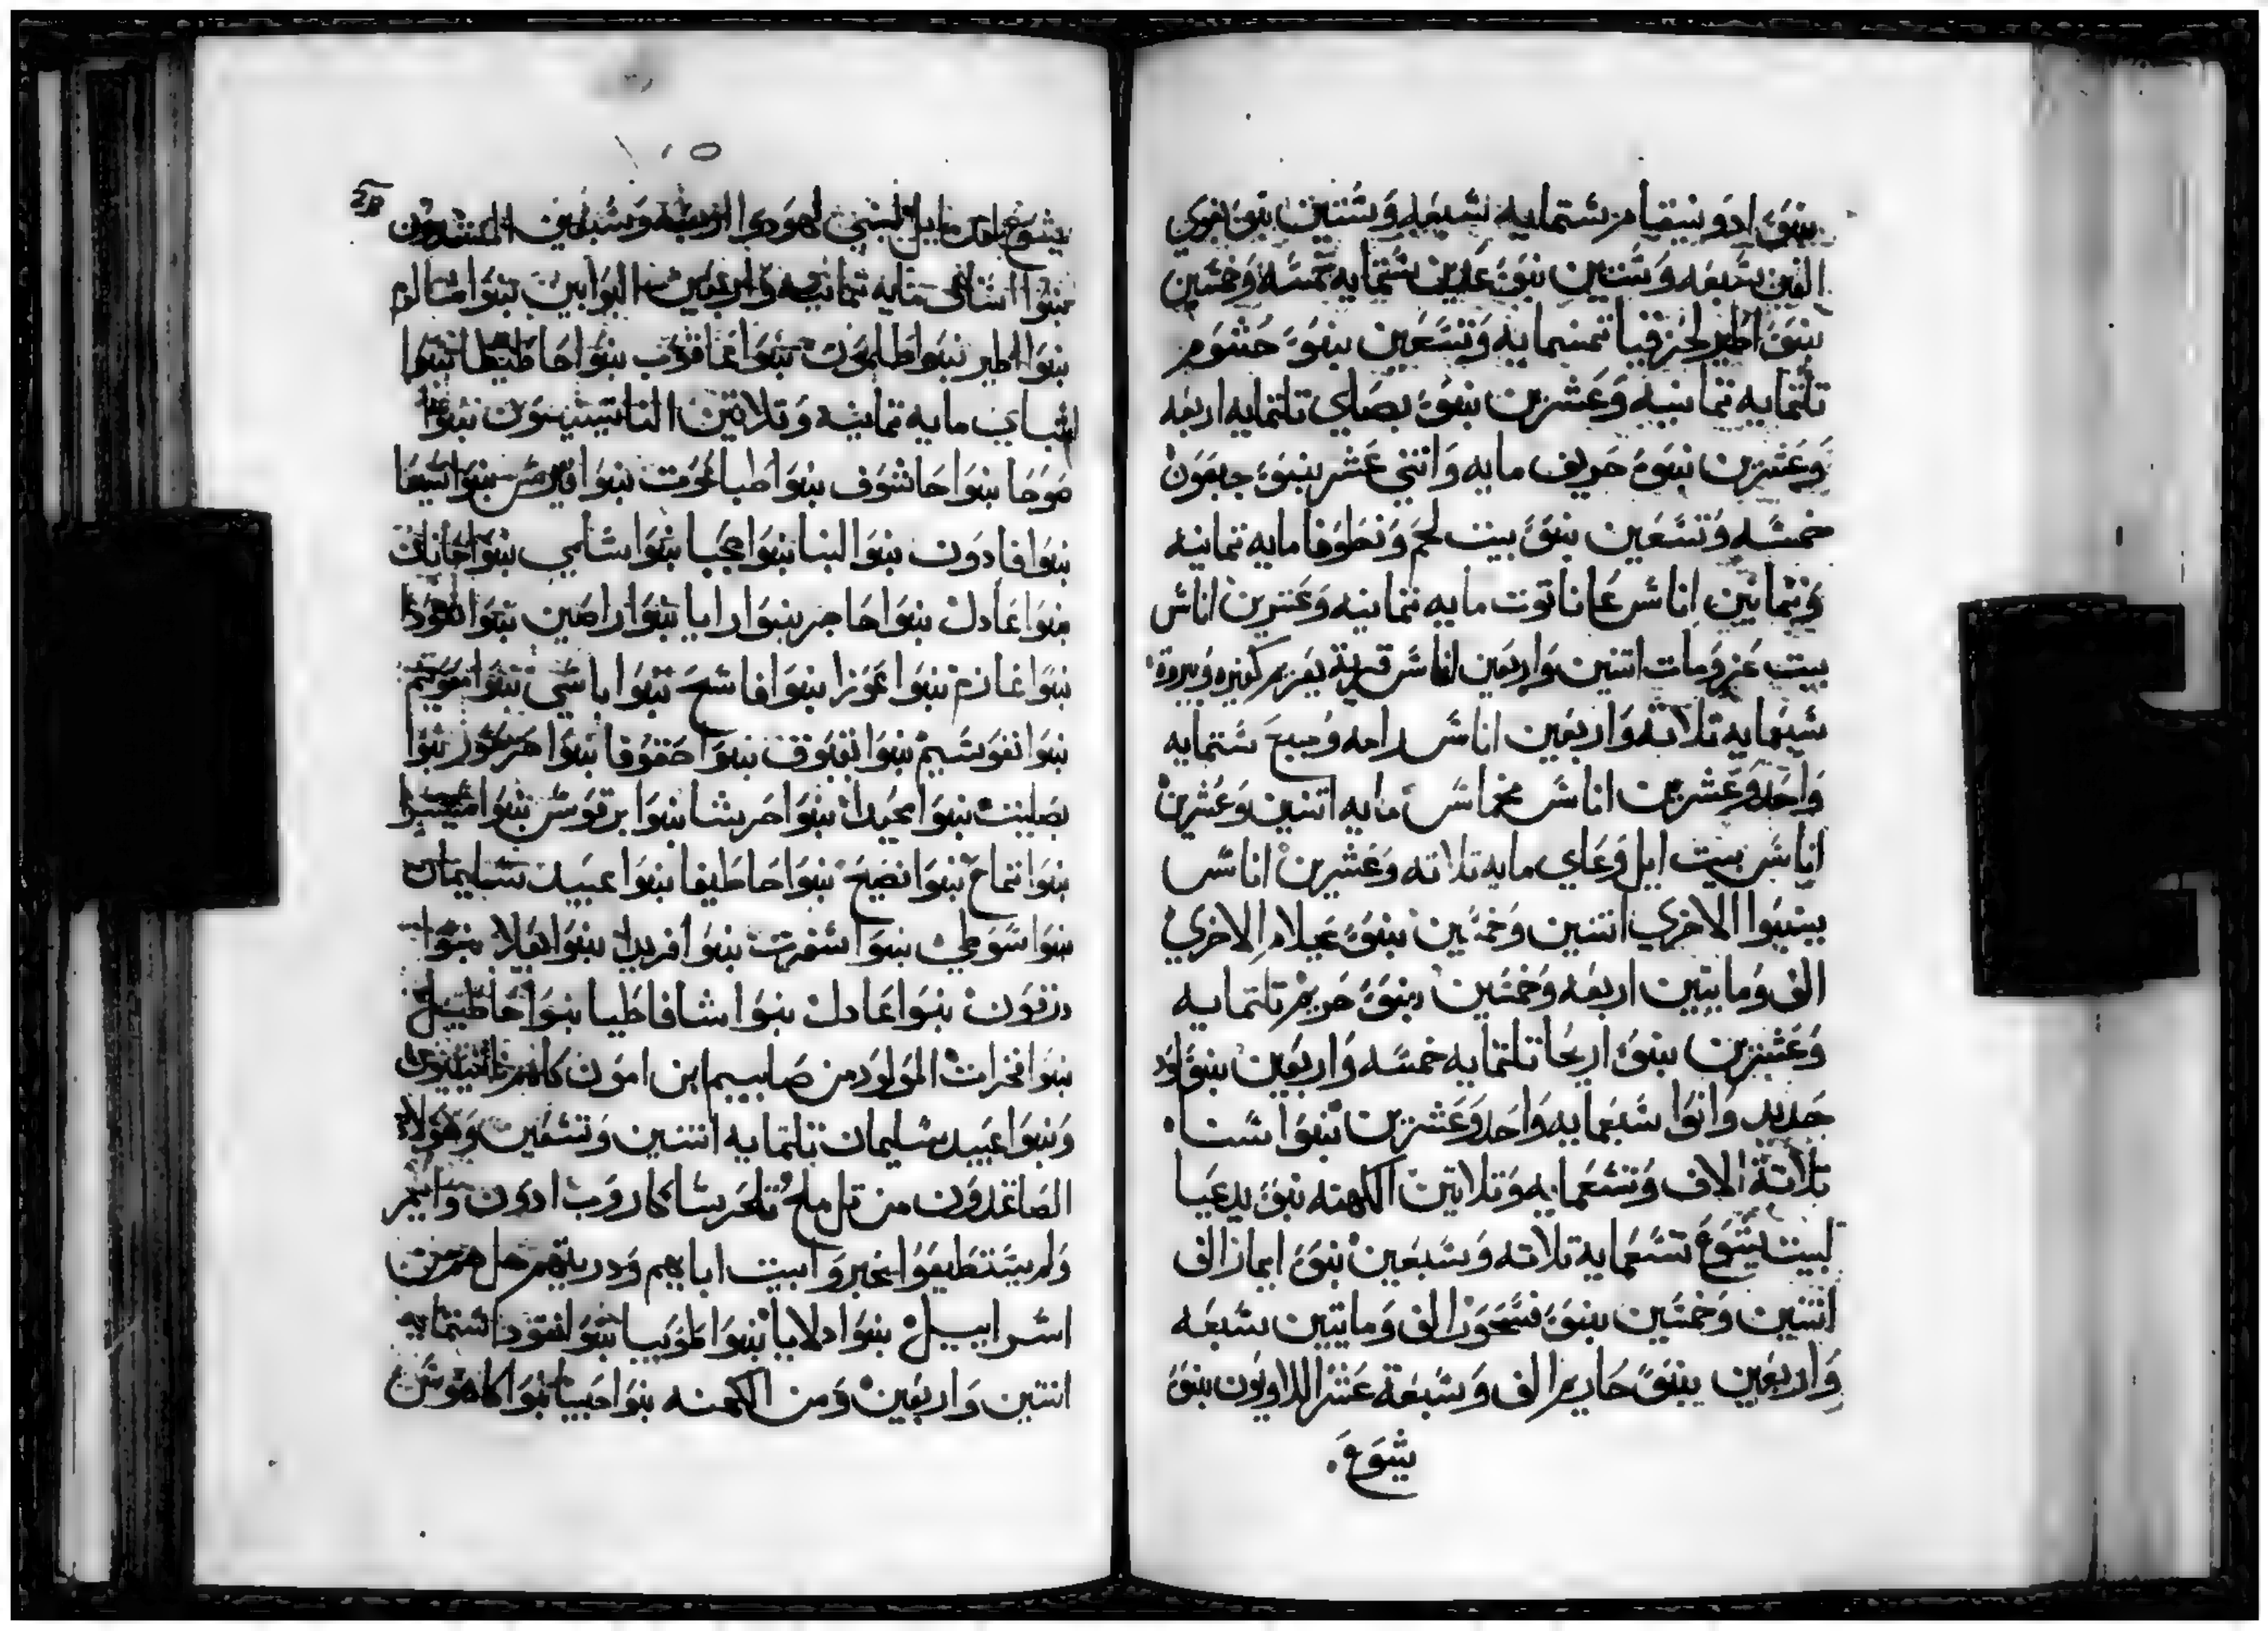 بنوَ ادونيقام ستمايه سبعه وَستين بنو بغوي
الفين سبعه وَستين بنوَ عدين ستمايه خمسه وَخمسين
بنوَ اطير لحزقيا ثمنمايه وَتسعين بنوَ حشوم
تلتمايه ثمانيه وَعشرين بنوَ بصاي تلتمايه اربعه
وَعشرين بنوَ حريف مايه وَاثني عشر بنوَ جبعون
خمسه وَتسعين بنوَ بيت لحم وَنطوفا مايه ثمانيه
وَثمانين اناس عاناتوت مايه ثمانيه وَعشرين اناس
بيت عزموات اتنين وَاربعين اناس قرية يعريم كفيره وبيروة
سبعمايه تلاته وَاربعين اناس رامه وَجبع ستمايه
وَاحد وَعشرين اناس مخماس مايه اتنين وَعشرين
اناس بيت ايل وَعاي مايه تلاته وَعشرين اناس
بينبوا الاخري اتنين وَخمسين بنوَ عيلام الاخري
الف وَمايتين اربعه وَخمسين بنوَ حريم تلتمايه
وَعشرين بنوَ اريحا تلتمايه خمسه وَاربعين بنوَ لود
حديد وَانوا سبعمايه وَاحد وَعشرين بنوا سنا
تلاتة الاف وَتسعمايه وَتلاتين الكهنه بنوَ يدعيا
لبيت يشوع تسعمايه تلاته وَسبعين بنوَ ايمار الف
اتنين وَخمسين بنوَ فسحور الف وَمايتين سبعه
وَاربعين بنوَ حاريم الف وَسبعة عشر اللاويون بنوَ
يشوع
يشوع لبني لهودوا اربعه وَسبعين المنشدون
بنوا اساف مايه ثمانيه وَاربعين البوابين بنوا مشالوم
بنوا اطير بنوا طلمون بنوا عاقوب بنوا حاطيطا بنوا
شباي مايه ثمانيه وَتلاتين الناتينيون بنوا
صوحا بنوا حاشوف بنوا طباعوت بنوا قيرس بنوا سيعا
بنوا فادون بنوا لبنا بنوا عجبا بنوا شلمي بنوا حانان
بنوا غادل بنوا حاجر بنوا رايا بنوا راصين بنوا نقودا
بنوا غازم بنوا عوزا بنوا فاسح بنوا باسي بنوا معونيم
بنوا نفوسيم بنوا بقبوق بنوا حقوفا بنوا حرحور بنوا
بصليت بنوا محيدا بنوا حرشا بنوا برقوس بنوا سيسرا
بنوا تماح بنوا نصيح بنوا حاطيفا بنوا عبيد سليمان
بنوا سوطي بنوا سفرت بنوا فريدا بنوا يعلا بنوا
درقون بنوا غادل بنوا شافاطيا بنوا حاطيل
بنوا فخرات المولود من صابييم ابن امون كل
وَبنوا عبيد سليمان تلتمايه اتنين وَتسعين وَهولاء
الصاعدون من تل ملح تلحرشا كاروب ادون وَايمر
وَلم يستطيعوا يخبروا بيت اباهم وَدريتهم هل هم من
اسراييل بنوا دلايا بنوا طوبيا بنوا نقودا ستمايه
اتنين وَاربعين وَمن الكهنه بنوا حبيا بنوا